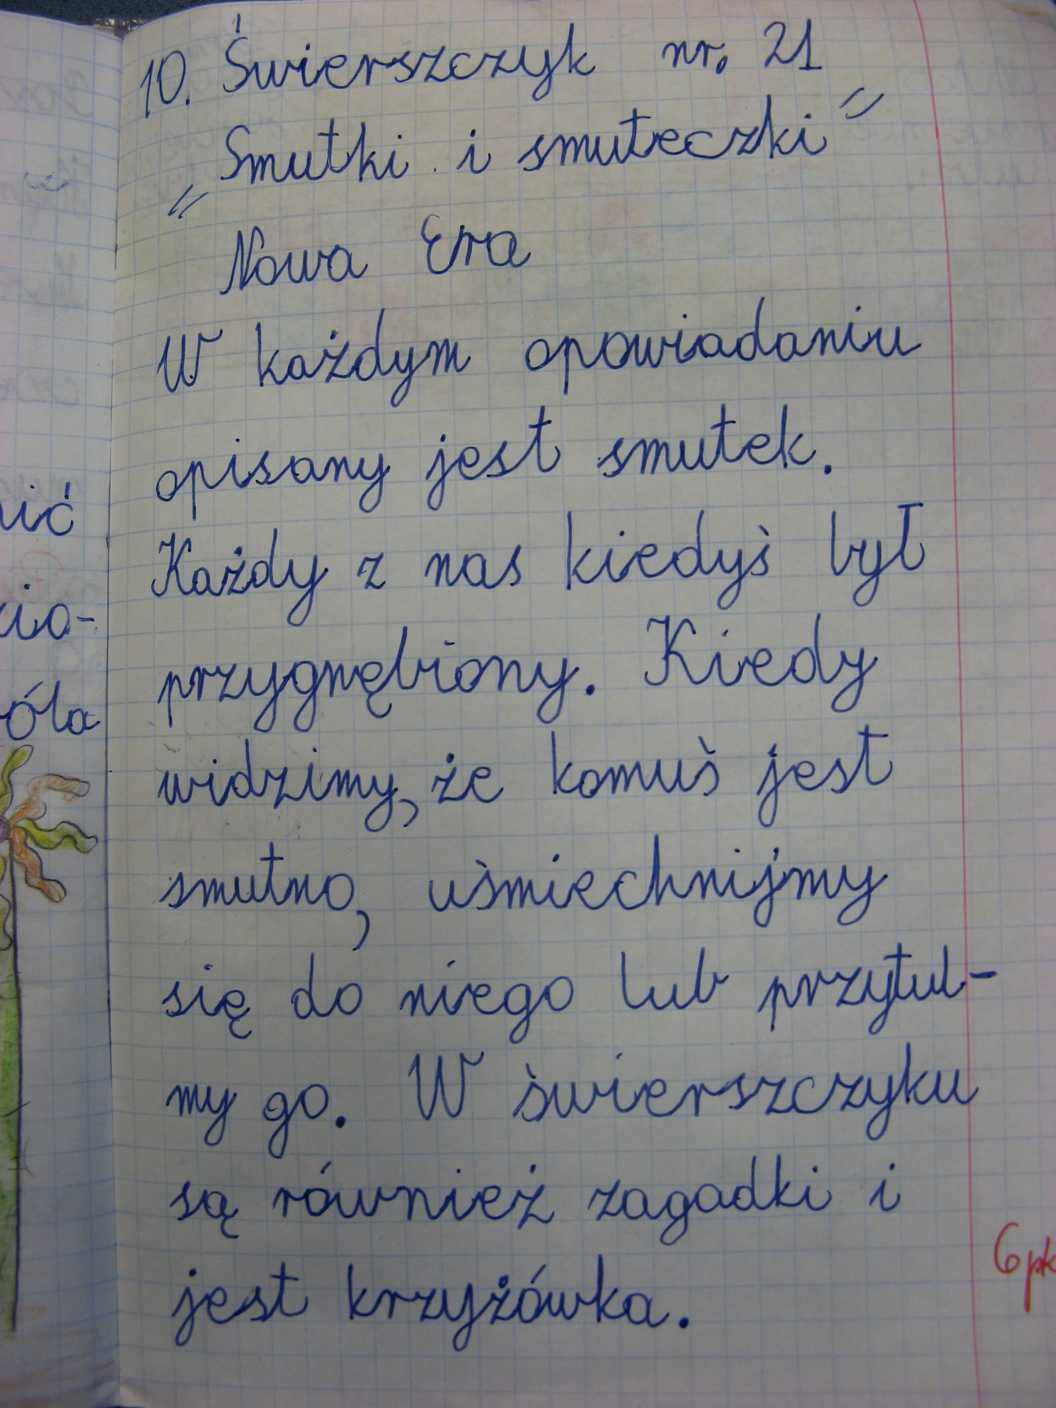 10. Świerszczyk nr. 21
„Smutki i smuteczki”
Nowa Era
W każdym opowiadaniu
opisany jest smutek.
Każdy z nas kiedyś był
przygnębiony. Kiedy
widzimy, że komuś jest
smutno, uśmiechnijmy
się do niego lub przytul-
my go. W świerszczyku
są również zagadki i
jest krzyżówka.
6 pk